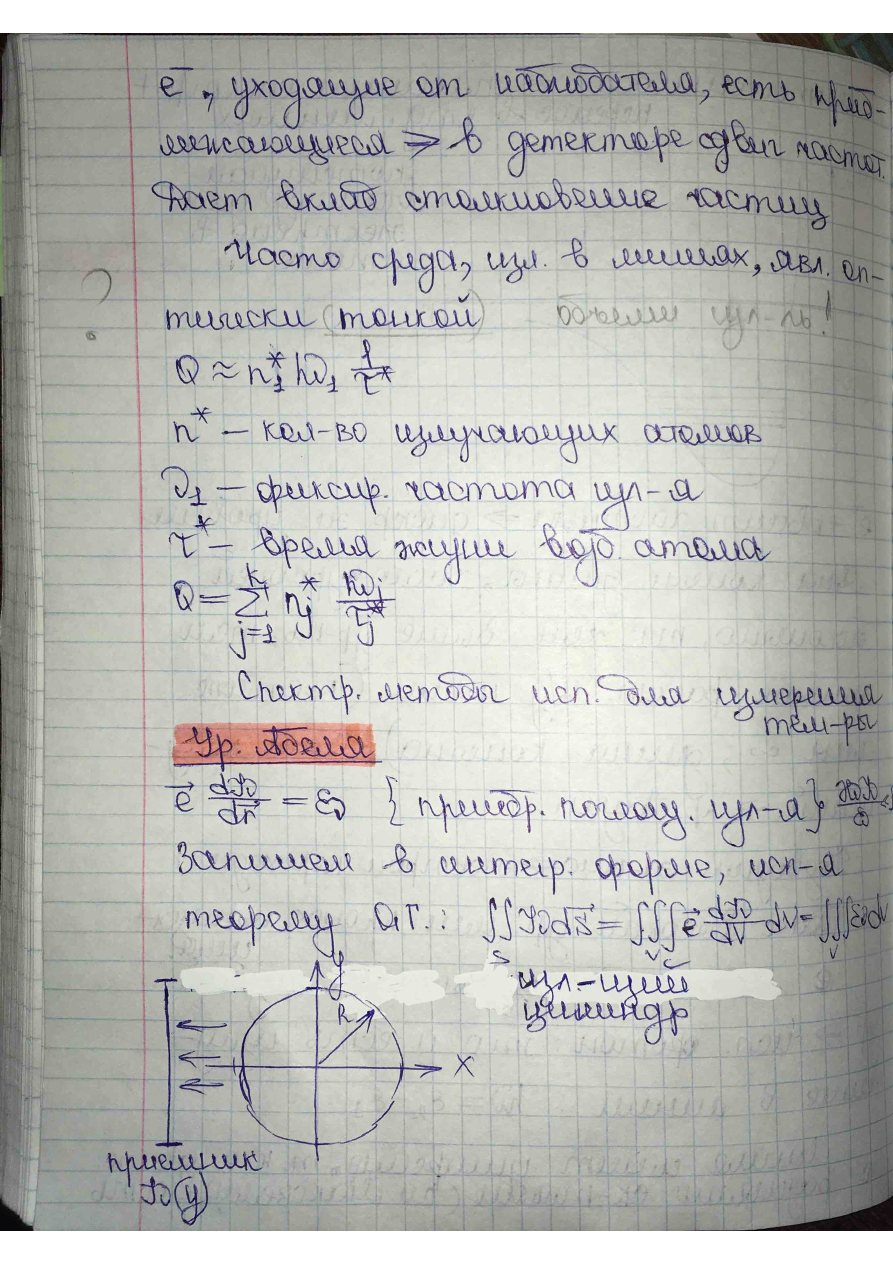 e⁻, уходящие от наблюдателя, есть приб-
лижающиеся ⇒ в детекторе сдвиг частот.
Дает вклад столкновение частиц
Часто среда, изл. в линиях, явл. оп-
тически (тонкой) - объемн изл-ль!
?
Q ≈ n₁* hν₁ 1/τ*
n* – кол-во излучающих атомов
ν₁ – фиксир. частота изл-я
τ* – время жизни возб. атома
Q = Σ_{j=1}^{k} n_j* hν_j/τ_j*
Спектр. методы исп. для измерения
тем-ры
Ур. Абеля
e⃗ dIν/dr⃗ = εν {пренебр. поглощ. изл-я}
Запишем в интегр. форме, исп-я
теорему О.Г.: ∬_S Iν dS⃗ = ∭_V e⃗ dIν/dV dV = ∭_V εν dV
изл-щий
цилиндр
y
R
x
приемник
Iν(y)